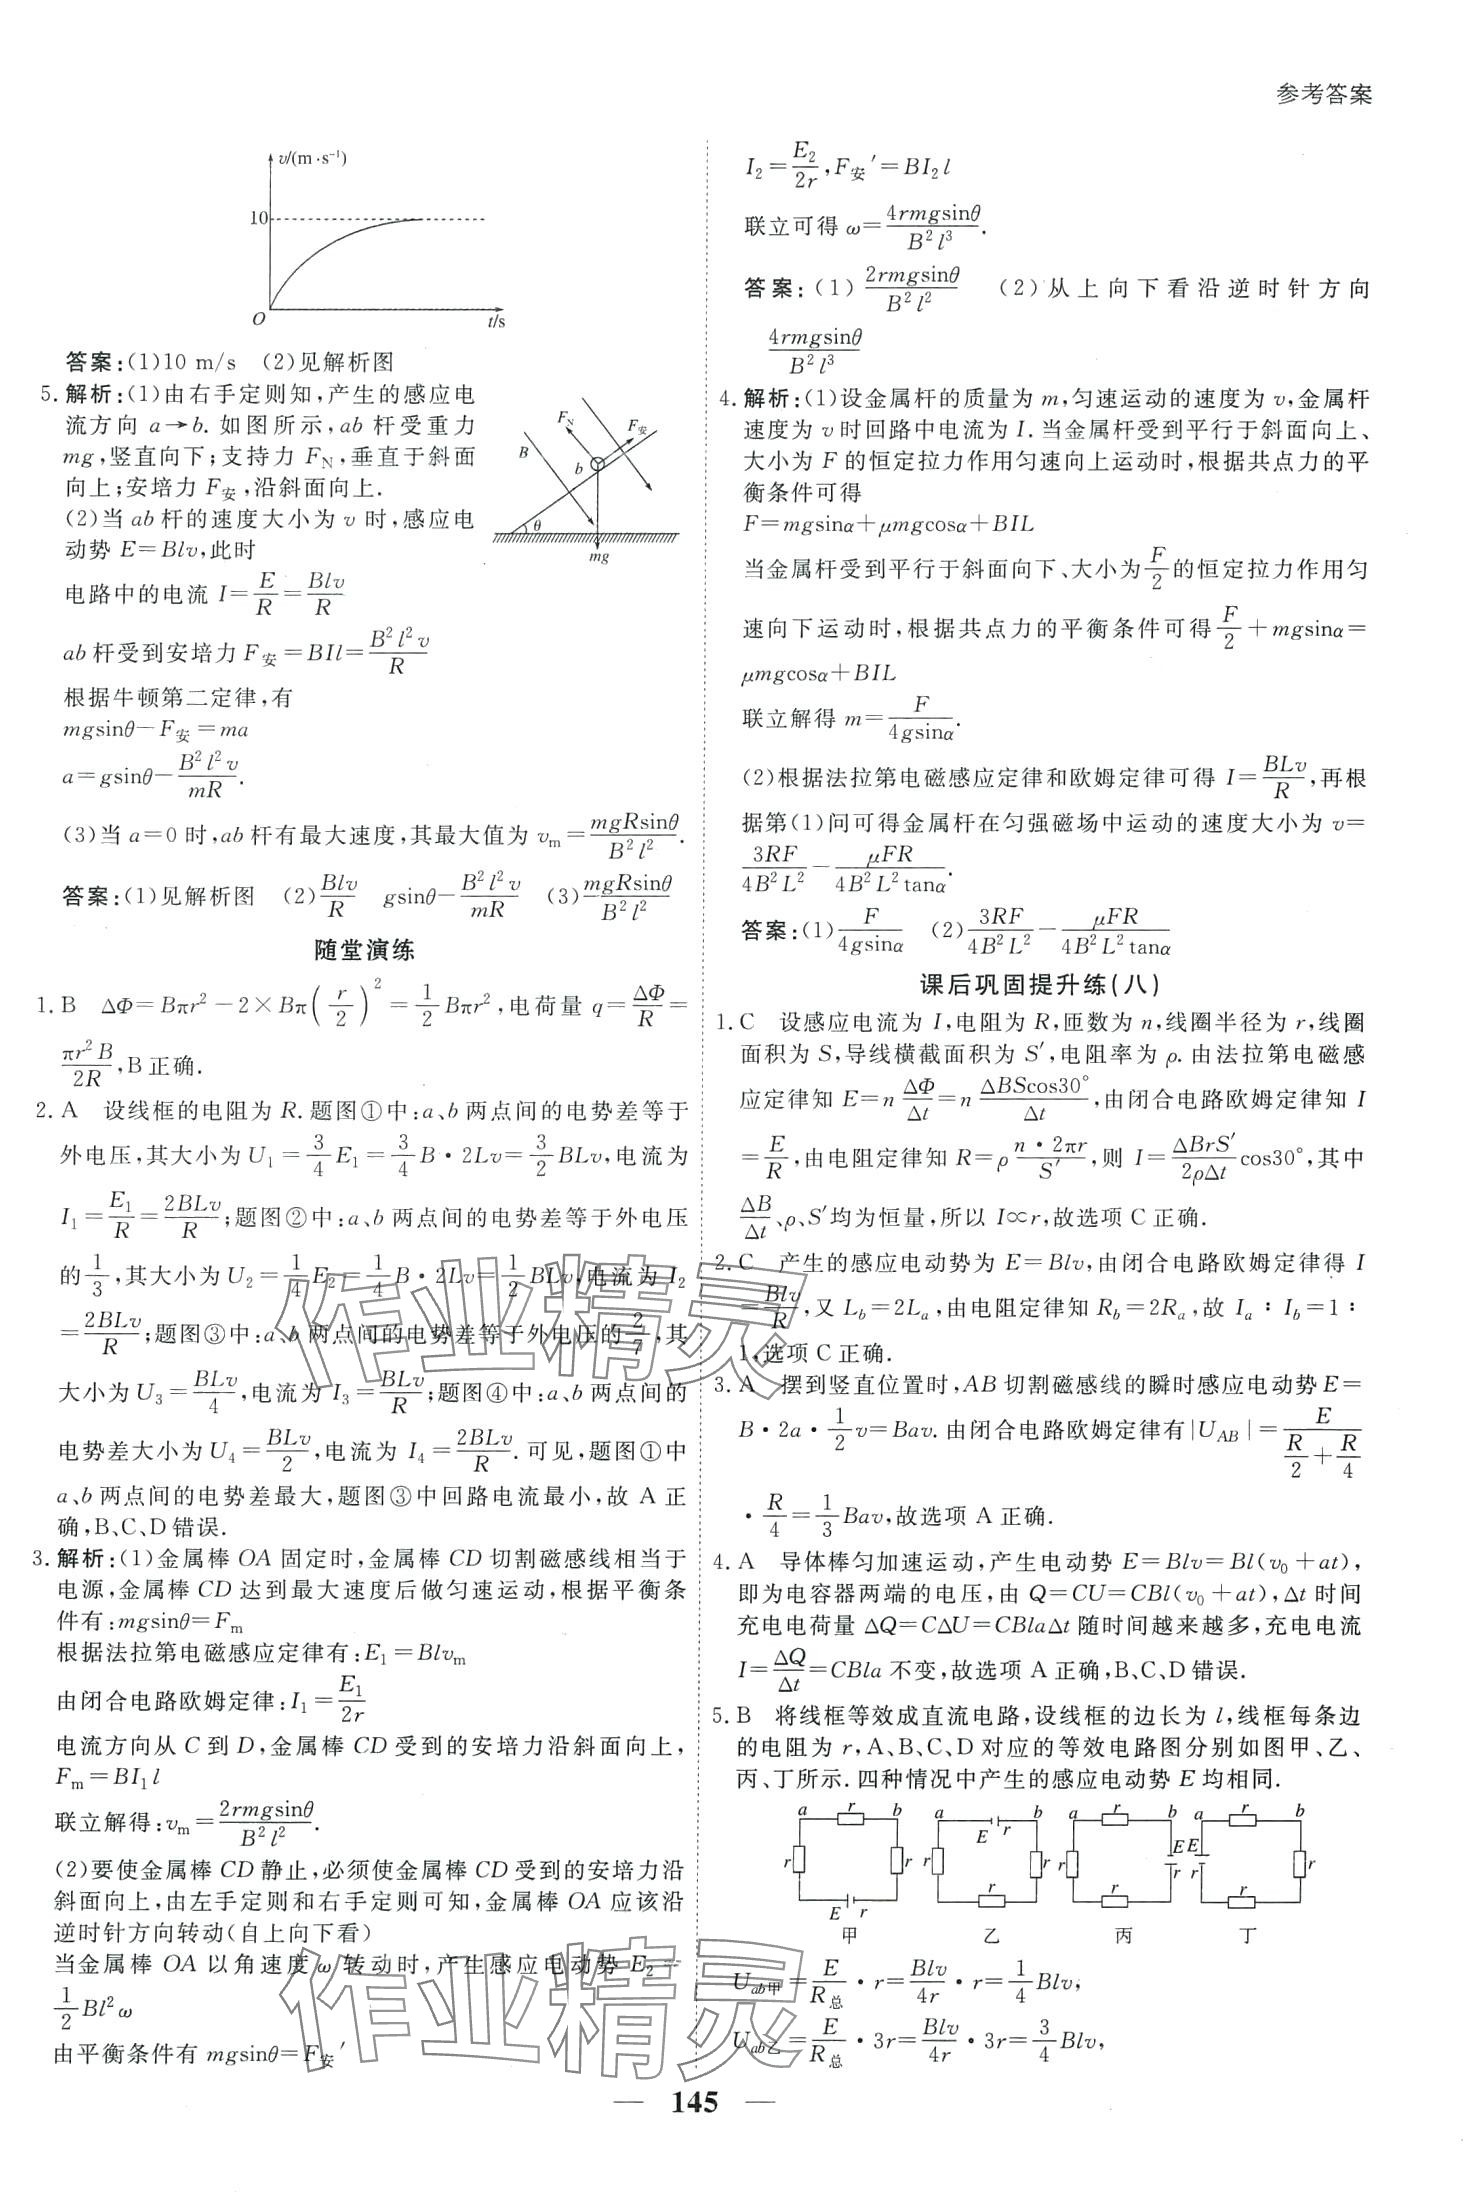 参考答案
v/(m·s⁻¹)
10
O
t/s
答案:(1)10 m/s (2)见解析图
5.解析:(1)由右手定则知,产生的感应电
流方向 a→b.如图所示,ab 杆受重力
mg,竖直向下;支持力 F_N,垂直于斜面
向上;安培力 F安,沿斜面向上.
(2)当 ab 杆的速度大小为 v 时,感应电
动势 E=Blv,此时
F_N
F安
B
b
θ
mg
电路中的电流 I=E/R=Blv/R
ab 杆受到安培力 F安=BIl=B²l²v/R
根据牛顿第二定律,有
mgsinθ-F安=ma
a=gsinθ-B²l²v/mR.
(3)当 a=0 时,ab 杆有最大速度,其最大值为 v_m=mgRsinθ/B²l².
答案:(1)见解析图 (2)Blv/R gsinθ-B²l²v/mR (3)mgRsinθ/B²l²
随堂演练
1.B ΔΦ=Bπr²-2×Bπ(r/2)²=1/2 Bπr²,电荷量 q=ΔΦ/R=
πr²B/2R,B 正确.
2.A 设线框的电阻为 R.题图①中:a、b 两点间的电势差等于
外电压,其大小为 U₁=3/4 E₁=3/4 B·2Lv=3/2 BLv,电流为
I₁=E₁/R=2BLv/R;题图②中:a、b 两点间的电势差等于外电压
的1/3,其大小为 U₂=1/4 E₂=1/4 B·2Lv=1/2 BLv,电流为 I₂
=2BLv/R;题图③中:a、b 两点间的电势差等于外电压的2/7,其
大小为 U₃=BLv/4,电流为 I₃=BLv/R;题图④中:a、b 两点间的
电势差大小为 U₄=BLv/2,电流为 I₄=2BLv/R.可见,题图①中
a、b 两点间的电势差最大,题图③中回路电流最小,故 A 正
确,B、C、D 错误.
3.解析:(1)金属棒 OA 固定时,金属棒 CD 切割磁感线相当于
电源,金属棒 CD 达到最大速度后做匀速运动,根据平衡条
件有:mgsinθ=F_m
根据法拉第电磁感应定律有:E₁=Blv_m
由闭合电路欧姆定律:I₁=E₁/2r
电流方向从 C 到 D,金属棒 CD 受到的安培力沿斜面向上,
F_m=BI₁l
联立解得:v_m=2rmgsinθ/B²l².
(2)要使金属棒 CD 静止,必须使金属棒 CD 受到的安培力沿
斜面向上,由左手定则和右手定则可知,金属棒 OA 应该沿
逆时针方向转动(自上向下看)
当金属棒 OA 以角速度 ω 转动时,产生感应电动势 E₂=
1/2 Bl²ω
由平衡条件有 mgsinθ=F安′
I₂=E₂/2r,F安′=BI₂l
联立可得 ω=4rmgsinθ/B²l³.
答案:(1)2rmgsinθ/B²l² (2)从上向下看沿逆时针方向
4rmgsinθ/B²l³
4.解析:(1)设金属杆的质量为 m,匀速运动的速度为 v,金属杆
速度为 v 时回路中电流为 I.当金属杆受到平行于斜面向上、
大小为 F 的恒定拉力作用匀速向上运动时,根据共点力的平
衡条件可得
F=mgsinα+μmgcosα+BIL
当金属杆受到平行于斜面向下、大小为F/2的恒定拉力作用匀
速向下运动时,根据共点力的平衡条件可得F/2+mgsinα=
μmgcosα+BIL
联立解得 m=F/4gsinα.
(2)根据法拉第电磁感应定律和欧姆定律可得 I=BLv/R,再根
据第(1)问可得金属杆在匀强磁场中运动的速度大小为 v=
3RF/4B²L²-μFR/4B²L²tanα.
答案:(1)F/4gsinα (2)3RF/4B²L²-μFR/4B²L²tanα
课后巩固提升练(八)
1.C 设感应电流为 I,电阻为 R,匝数为 n,线圈半径为 r,线圈
面积为 S,导线横截面积为 S′,电阻率为 ρ.由法拉第电磁感
应定律知 E=nΔΦ/Δt=nΔBScos30°/Δt,由闭合电路欧姆定律知 I
=E/R,由电阻定律知 R=ρn·2πr/S′,则 I=ΔBrS′/2ρΔt cos30°,其中
ΔB/Δt、ρ、S′均为恒量,所以 I∝r,故选项 C 正确.
2.C 产生的感应电动势为 E=Blv,由闭合电路欧姆定律得 I
=Blv/R,又 L_b=2L_a,由电阻定律知 R_b=2R_a,故 I_a∶I_b=1∶
1,选项 C 正确.
3.A 摆到竖直位置时,AB 切割磁感线的瞬时感应电动势 E=
B·2a·1/2 v=Bav.由闭合电路欧姆定律有|U_AB|=E/(R/2+R/4)
·R/4=1/3 Bav,故选项 A 正确.
4.A 导体棒匀加速运动,产生电动势 E=Blv=Bl(v₀+at),
即为电容器两端的电压,由 Q=CU=CBl(v₀+at),Δt 时间
充电电荷量 ΔQ=CΔU=CBlaΔt 随时间越来越多,充电电流
I=ΔQ/Δt=CBla 不变,故选项 A 正确,B、C、D 错误.
5.B 将线框等效成直流电路,设线框的边长为 l,线框每条边
的电阻为 r,A、B、C、D 对应的等效电路图分别如图甲、乙、
丙、丁所示.四种情况中产生的感应电动势 E 均相同.
a r b r r E r 甲
a b E r r r r 乙
a r b r E r r 丙
a r b E r r r 丁
U_ab甲=E/R总·r=Blv/4r·r=1/4 Blv,
U_ab乙=E/R总·3r=Blv/4r·3r=3/4 Blv,
作业精灵
作业精灵
— 145 —